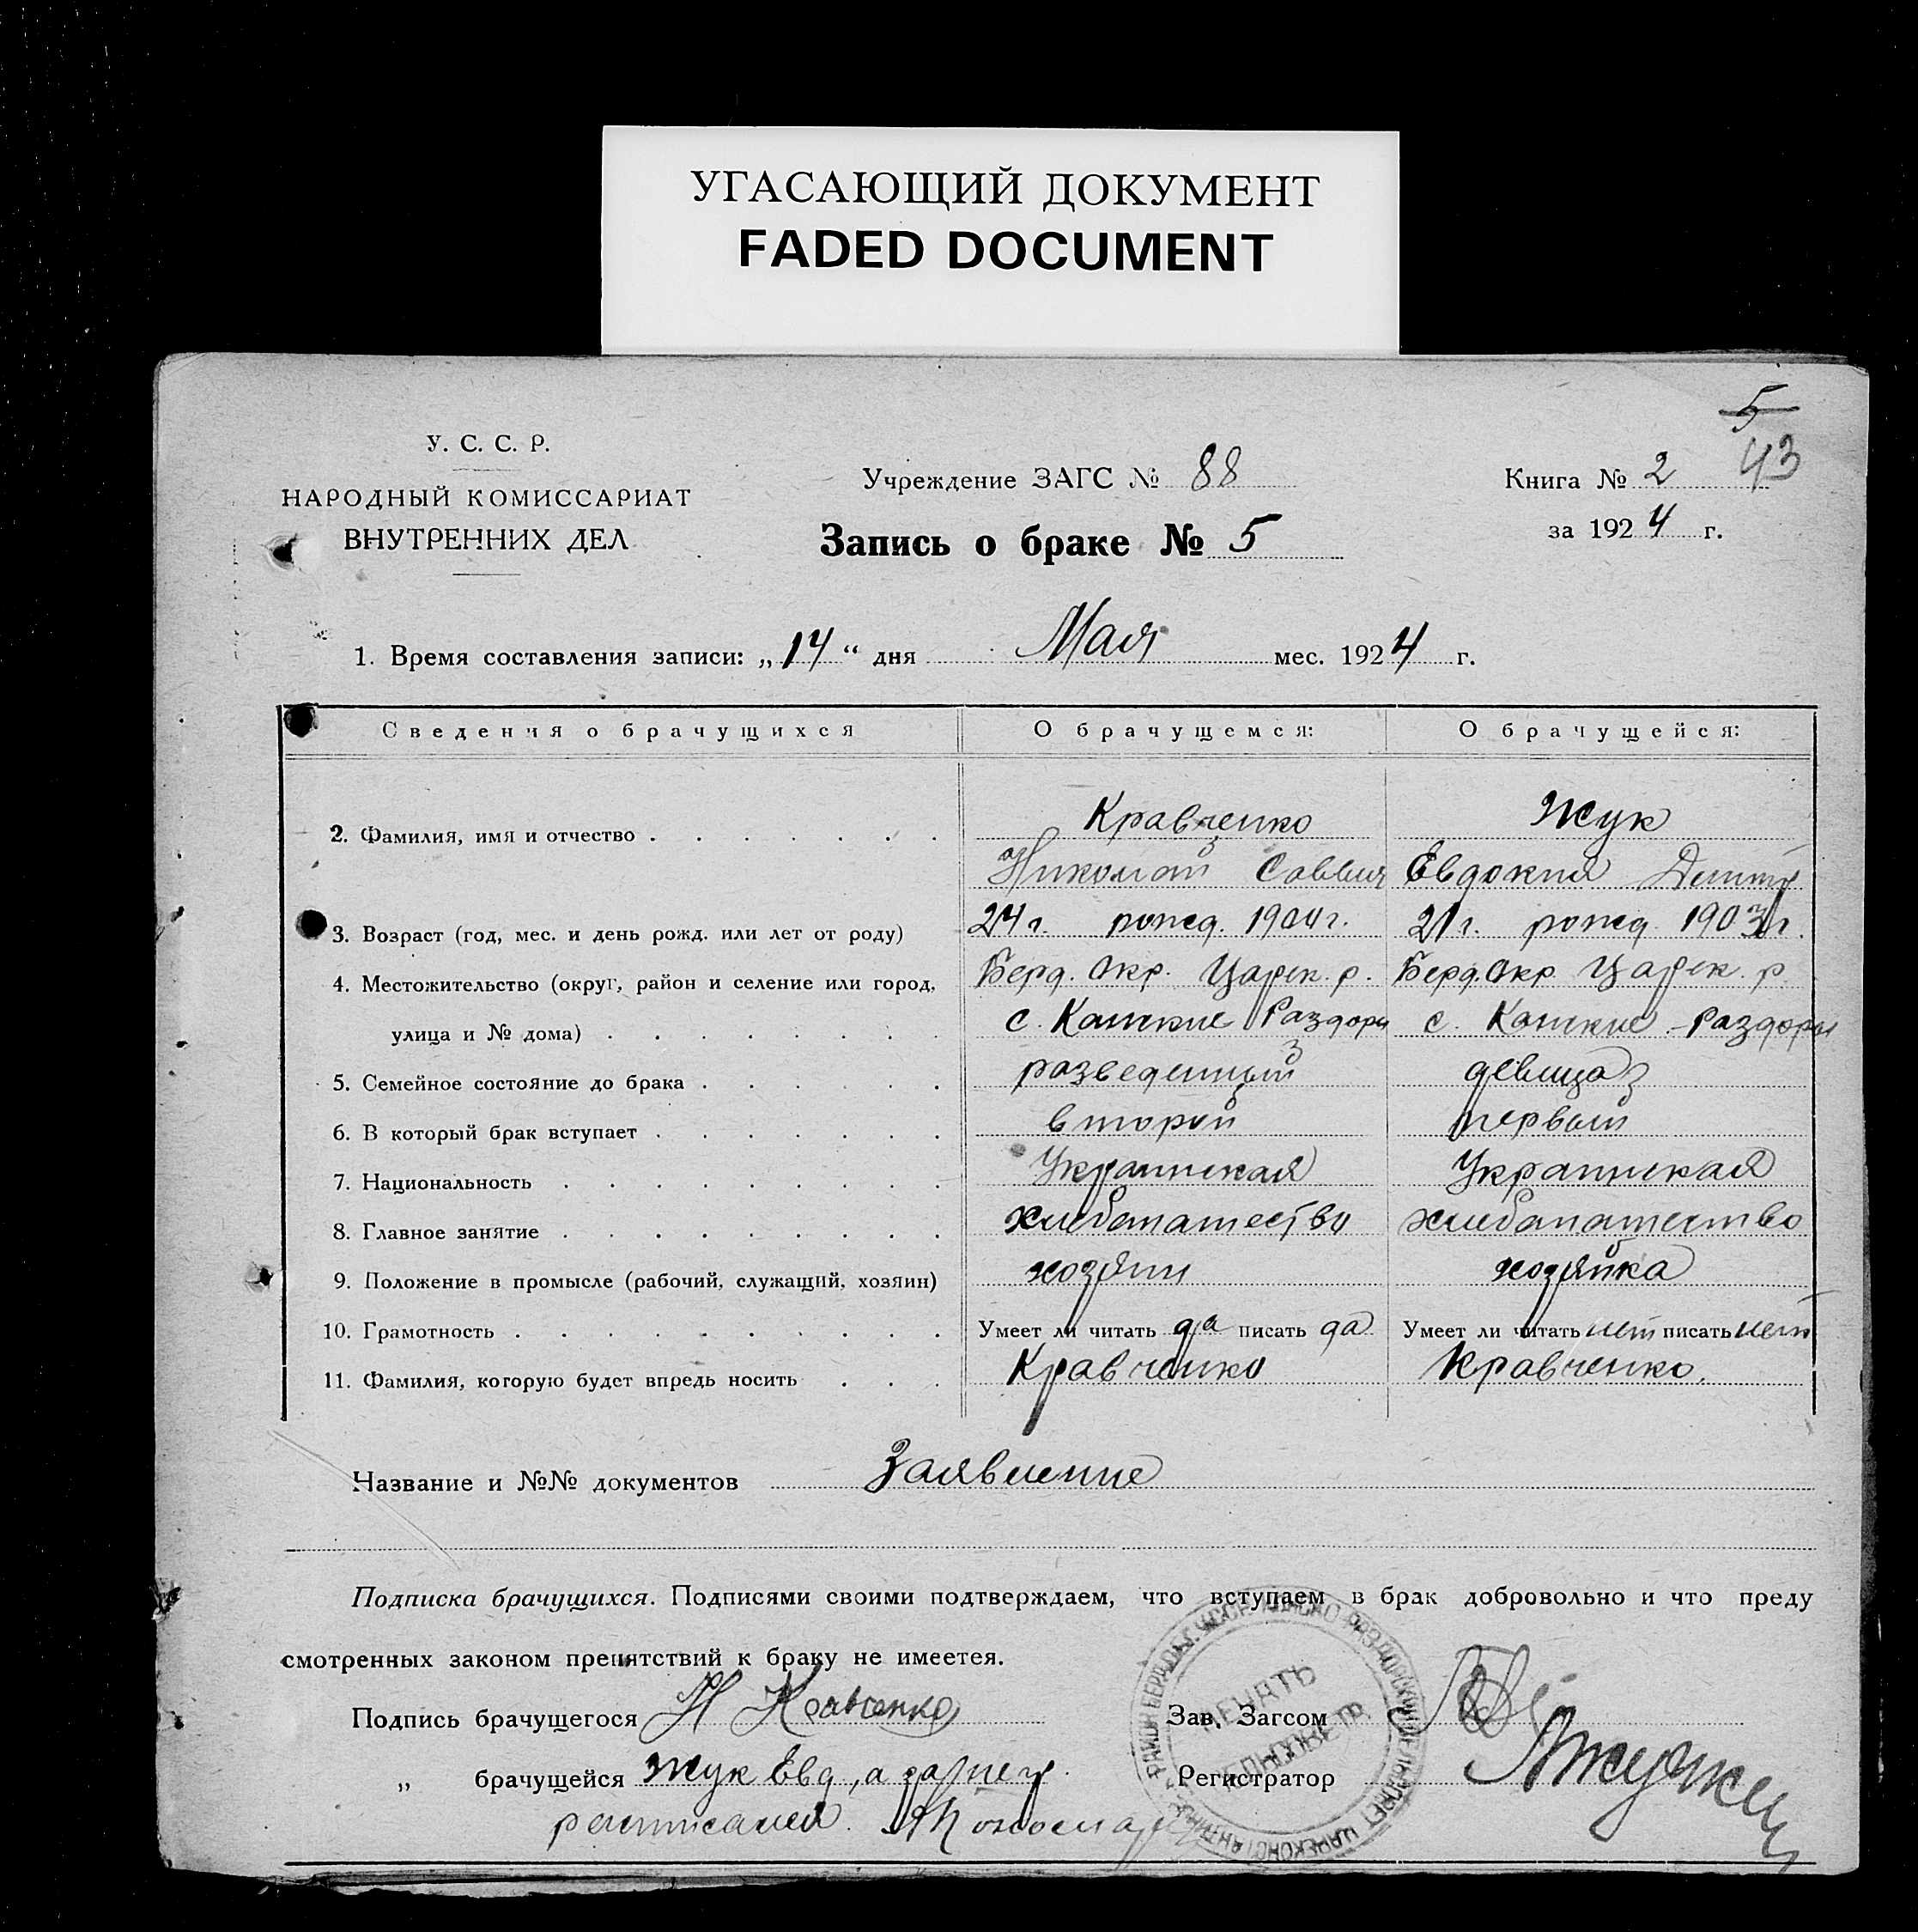 УГАСАЮЩИЙ ДОКУМЕНТ
FADED DOCUMENT
5
43
У. С. С. Р.
НАРОДНЫЙ КОМИССАРИАТ
ВНУТРЕННИХ ДЕЛ
Учреждение ЗАГС № 88
Книга № 2
Запись о браке № 5
за 1924 г.
1. Время составления записи: „14“ дня Мая мес. 1924 г.
Сведения о брачущихся О брачущемся: О брачущейся:
2. Фамилия, имя и отчество Кравченко Жук
Николай Саввич Евдокия Дмитр
3. Возраст (год, мес. и день рожд. или лет от роду) 24 г. рожд. 1900 г. 21 г. рожд. 1903 г.
4. Местожительство (округ, район и селение или город, Берд. Окр. Царек. р. Берд. Окр. Царек. р.
улица и № дома) с. Конские Раздоры с. Конские-Раздоры
5. Семейное состояние до брака разведенный девица
6. В который брак вступает второй первый
7. Национальность Украинская Украинская
8. Главное занятие хлебопашество хлебопашество
9. Положение в промысле (рабочий, служащий, хозяин) хозяин хозяйка
10. Грамотность Умеет ли читать да писать да Умеет ли читать нет писать нет
11. Фамилия, которую будет впредь носить Кравченко Кравченко.
Название и №№ документов Заявление
Подписка брачущихся. Подписями своими подтверждаем, что вступаем в брак добровольно и что преду
смотренных законом препятствий к браку не имеется.
Подпись брачущегося Н Кравченко Зав. Загсом
„ брачущейся Жук Евд, а за нее Регистратор
расписался.
ПЕЧАТЬ
СЕЛЬСОВЕТА